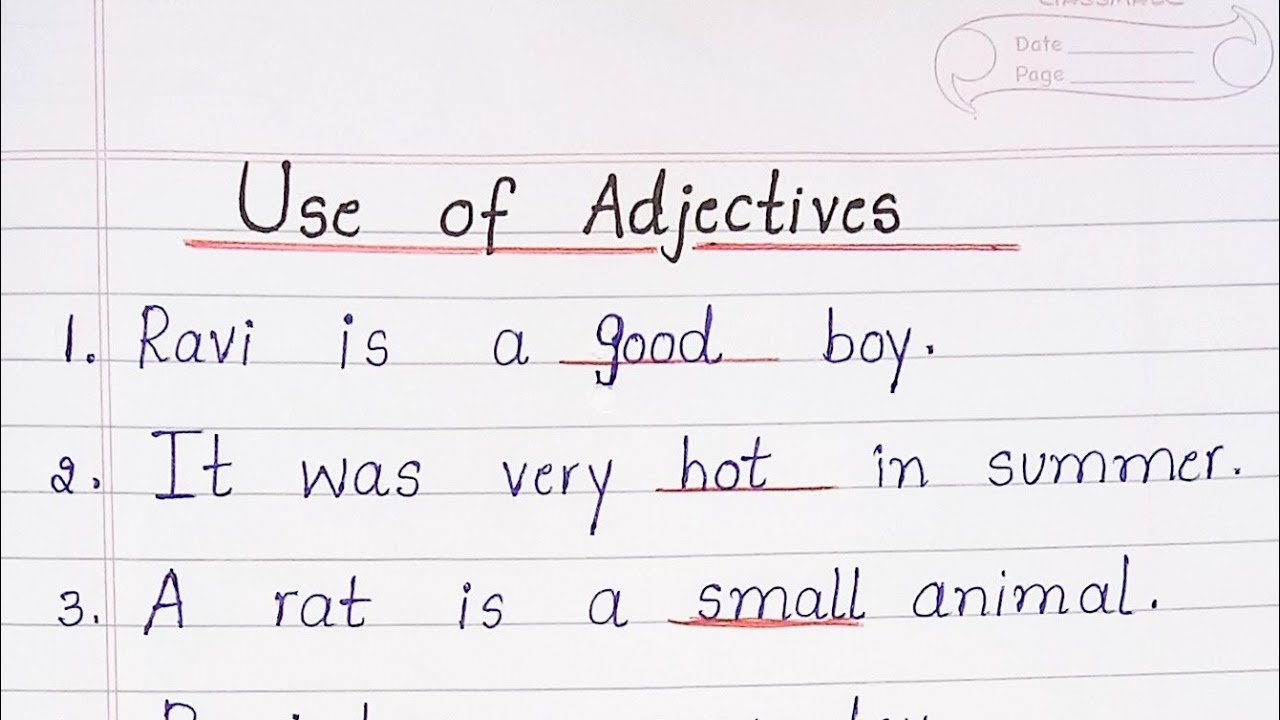 Date
Page
Use of Adjectives
1. Ravi is a good boy.
2. It was very hot in summer.
3. A rat is a small animal.